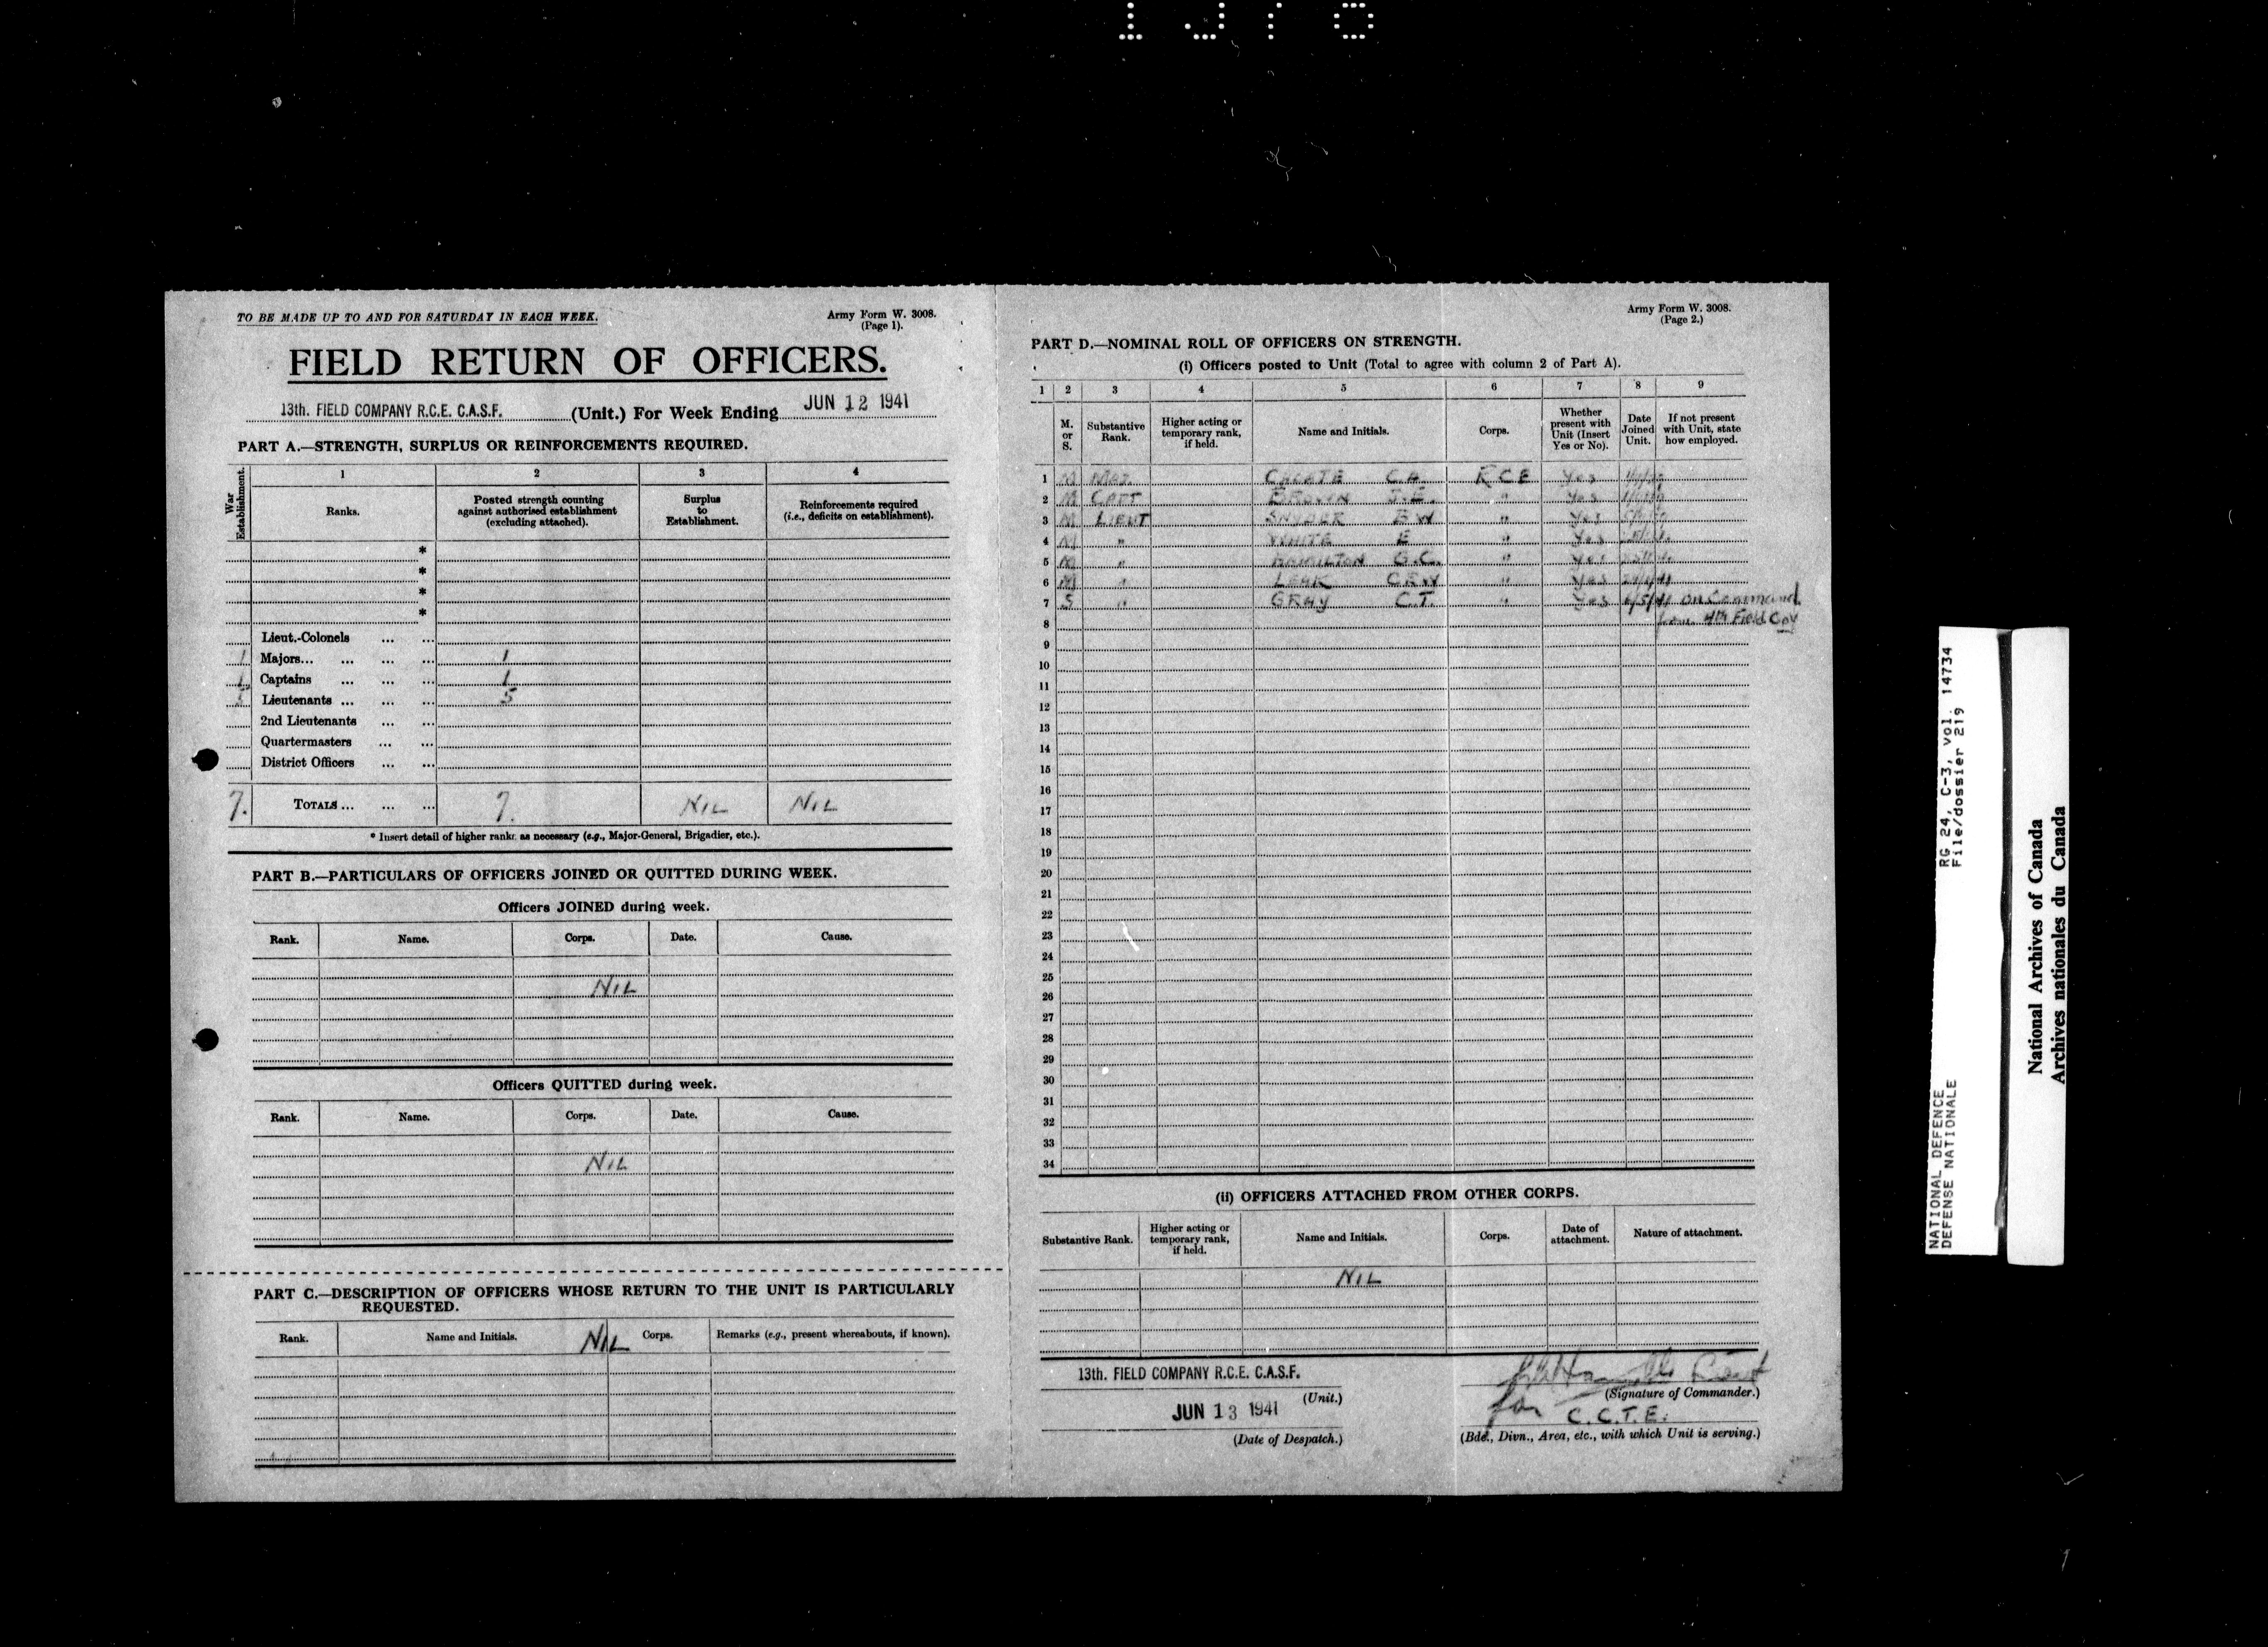 TO BE MADE UP TO AND FOR SATURDAY IN EACH WEEK.
Army Form W. 3008.
(Page 1).
FIELD RETURN OF OFFICERS.
13th. FIELD COMPANY R.C.E. C.A.S.F. (Unit.) For Week Ending JUN 12 1941
PART A.—STRENGTH, SURPLUS OR REINFORCEMENTS REQUIRED.
War Establishment.
1 2 3 4
Ranks.
Posted strength counting against authorised establishment (excluding attached).
Surplus to Establishment.
Reinforcements required (i.e., deficits on establishment).
*
*
*
*
Lieut.-Colonels ... ...
1 Majors... ... ... ... 1
1 Captains ... ... ... 1
Lieutenants ... ... ... 5
2nd Lieutenants ... ...
Quartermasters ... ...
District Officers ... ...
7. TOTALS ... ... ... 7. NIL NIL
* Insert detail of higher ranks as necessary (e.g., Major-General, Brigadier, etc.).
PART B.—PARTICULARS OF OFFICERS JOINED OR QUITTED DURING WEEK.
Officers JOINED during week.
Rank. Name. Corps. Date. Cause.
NIL
Officers QUITTED during week.
Rank. Name. Corps. Date. Cause.
NIL
PART C.—DESCRIPTION OF OFFICERS WHOSE RETURN TO THE UNIT IS PARTICULARLY
REQUESTED.
Rank. Name and Initials. NIL Corps. Remarks (e.g., present whereabouts, if known).
Army Form W. 3008.
(Page 2.)
PART D.—NOMINAL ROLL OF OFFICERS ON STRENGTH.
(i) Officers posted to Unit (Total to agree with column 2 of Part A).
1 2 3 4 5 6 7 8 9
M. or S.
Substantive Rank.
Higher acting or temporary rank, if held.
Name and Initials.
Corps.
Whether present with Unit (Insert Yes or No).
Date Joined Unit.
If not present with Unit, state how employed.
1 M MAJ. CHOATE C.A. R C E Yes
2 M CAPT BROWN J.E. " Yes
3 M LIEUT SNYDER B W " Yes
4 M " WHITE E " Yes
5 M " HAMILTON G.C. " Yes
6 M " LEAK C R W " Yes
7 S " GRAY C.T. " Yes on Command
8 from 4th Field Coy
9
10
11
12
13
14
15
16
17
18
19
20
21
22
23
24
25
26
27
28
29
30
31
32
33
34
(ii) OFFICERS ATTACHED FROM OTHER CORPS.
Substantive Rank.
Higher acting or temporary rank, if held.
Name and Initials.
Corps.
Date of attachment.
Nature of attachment.
NIL
13th. FIELD COMPANY R.C.E. C.A.S.F.
(Unit.)
JUN 13 1941
(Date of Despatch.)
(Signature of Commander.)
for C.C.T.E.
(Bde., Divn., Area, etc., with which Unit is serving.)
NATIONAL DEFENCE
DEFENSE NATIONALE
RG 24, C-3, Vol. 14734
File/dossier 219
National Archives of Canada
Archives nationales du Canada